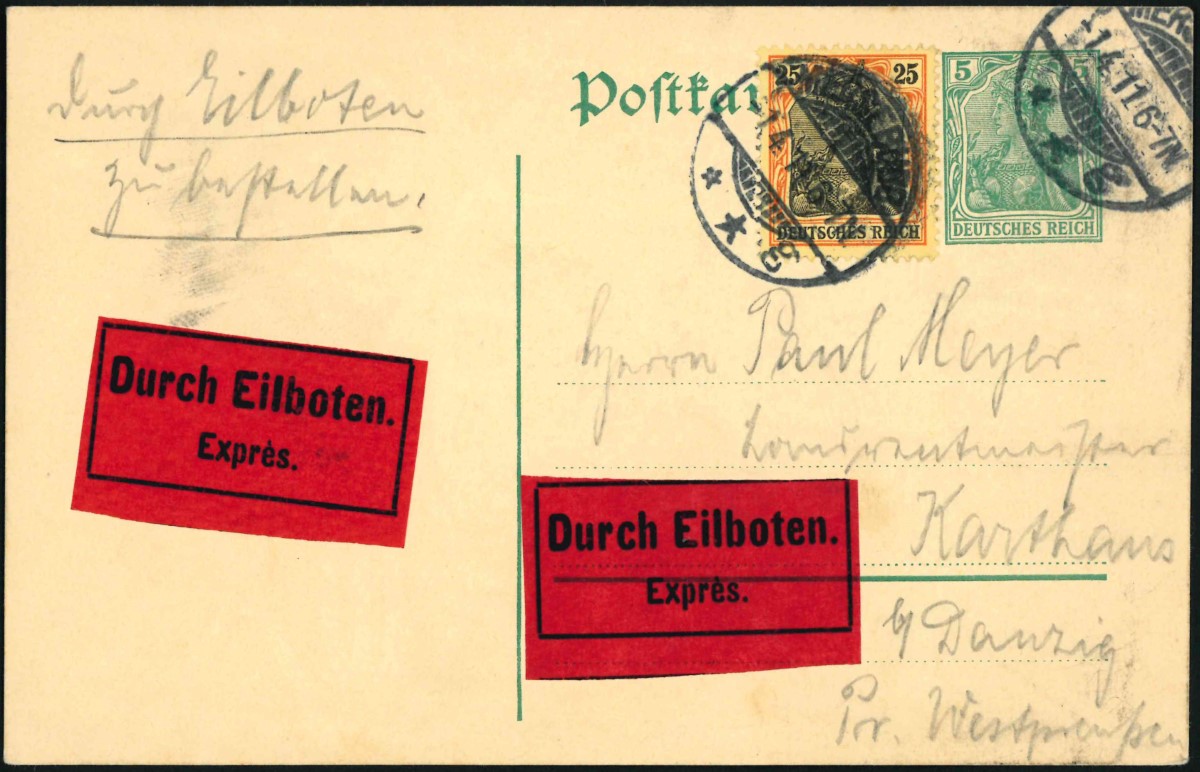 Durch Eilboten
zu bestellen.
Postkar
25 25
DEUTSCHES REICH
5 5
DEUTSCHES REICH
1.4.11.6-7N.
1.4.11.6-7N.
Durch Eilboten.
Exprès.
Herrn Paul Meyer
Landrentmeister
Durch Eilboten.
Exprès.
Karthaus
b/ Danzig.
Pr. Westpreußen